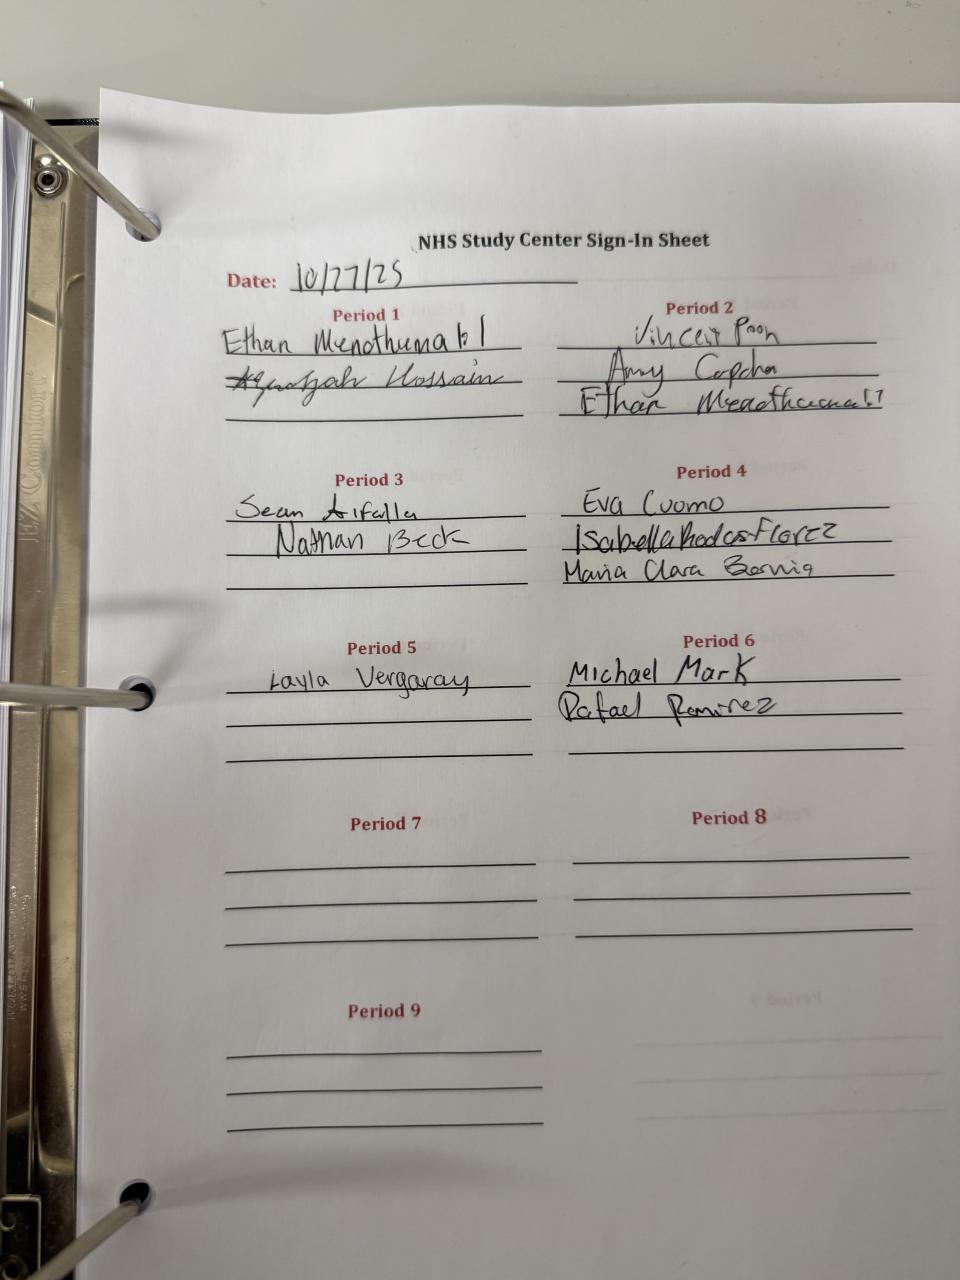 NHS Study Center Sign-In Sheet
Date: 10/27/25
Period 1
Ethan
Hossain
Period 2
Vincent Poon
Amy Capcha
Ethan
Period 3
Sean
Nathan Beck
Period 4
Eva Cuomo
Isabella Rodas Florez
Maria Clara
Period 5
Layla Vergaray
Period 6
Michael Mark
Rafael Ramirez
Period 7
Period 8
Period 9